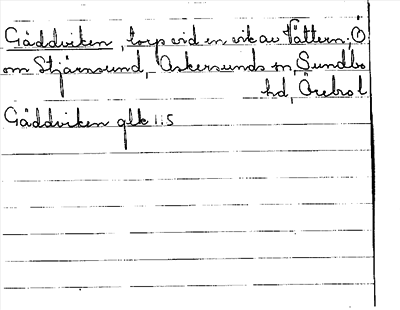 Gäddviken, torp vid en vik av Vättern, Ö
om Stjärnsund, Askersunds sn, Sundbo
hd, Örebro l
Gäddviken glk 1:5